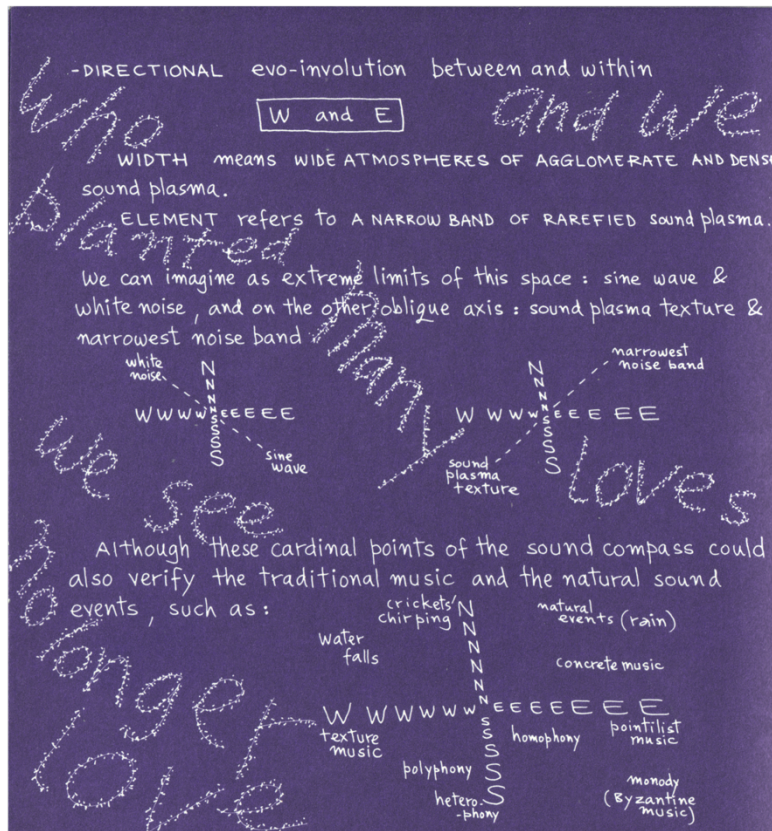 -DIRECTIONAL evo-involution between and within
Who
and we
W and E
WIDTH means WIDE ATMOSPHERES OF AGGLOMERATE AND DENSE
sound plasma.
blanted
ELEMENT refers to A NARROW BAND OF RAREFIED sound plasma.
We can imagine as extreme limits of this space : sine wave &
white noise , and on the other oblique axis : sound plasma texture &
narrowest noise band
many
white
noise
N N N N N
W W W W E E E E E
S S S S
sine
wave
narrowest
noise band
N N N N N
W W W W E E E E E
S S S S
sound
plasma
texture
we
see
loves
Although these cardinal points of the sound compass could
also verify the traditional music and the natural sound
events , such as :
no
longer
love
crickets'
chirping
natural
events (rain)
water
falls
concrete music
N N N N N N N
W W W W W W E E E E E E E
S S S S S S
texture
music
homophony
pointilist
music
polyphony
hetero-
-phony
monody
(Byzantine
music)